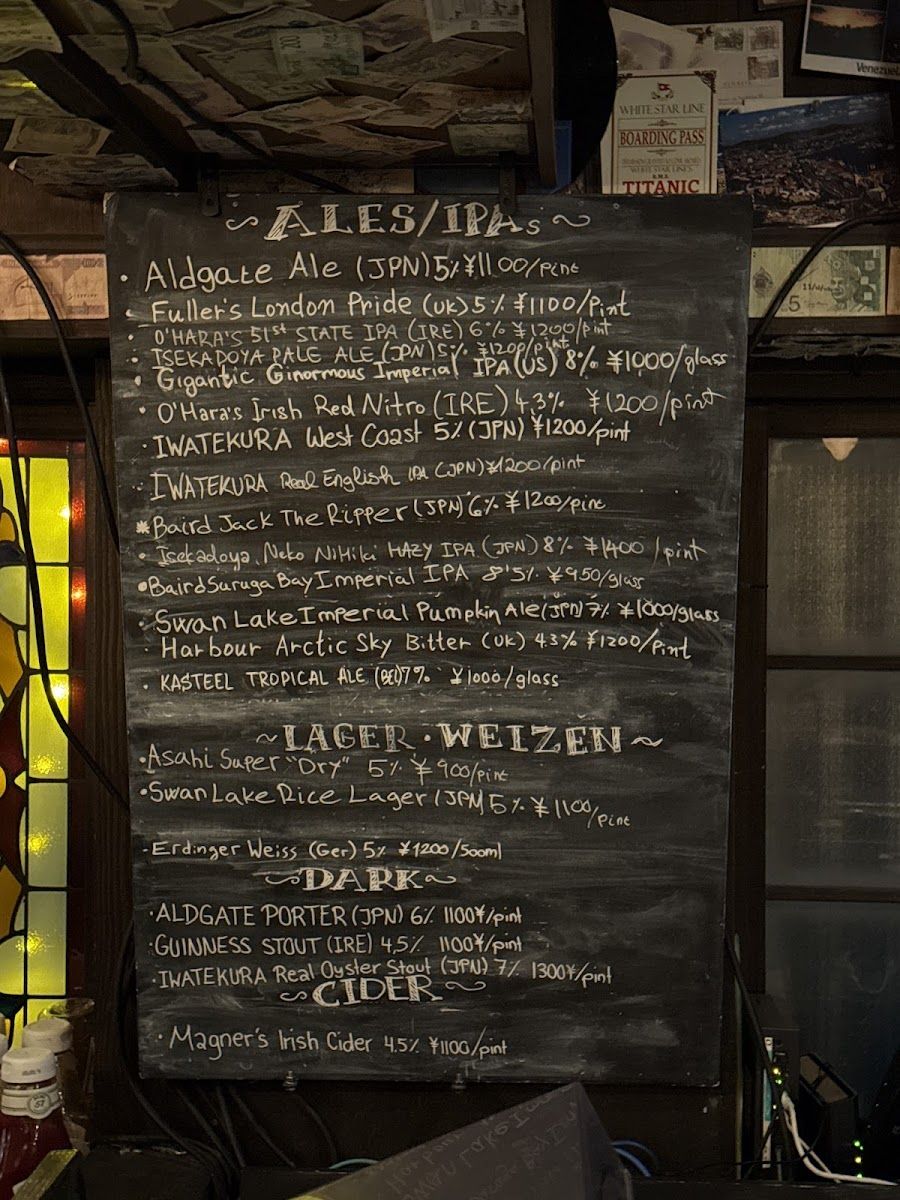 Venezuel
WHITE STAR LINE
BOARDING PASS
WHITE STAR LINE'S
TITANIC
~ ALES/IPAs ~
· Aldgate Ale (JPN) 5% ¥1100/pint
· Fuller's London Pride (UK) 5% ¥1100/Pint
· O'HARA'S 51st STATE IPA (IRE) 6% ¥1200/pint
· ISEKADOYA PALE ALE (JPN) 5% ¥1200/pint
· Gigantic Ginormous Imperial IPA (US) 8% ¥1000/glass
· O'Hara's Irish Red Nitro (IRE) 4.3% ¥1200/pint
· IWATEKURA West Coast 5% (JPN) ¥1200/pint
· IWATEKURA Real English IPA (JPN) ¥1200/pint
* Baird Jack The Ripper (JPN) 6% ¥1200/pint
· Isekadoya Neko NiHiki HAZY IPA (JPN) 8% ¥1400/pint
· Baird Suruga Bay Imperial IPA 8'5% ¥950/glass
· Swan Lake Imperial Pumpkin Ale (JPN) 7% ¥1000/glass
· Harbour Arctic Sky Bitter (UK) 4.3% ¥1200/Pint
· KASTEEL TROPICAL ALE (BEL) 7% ¥1000/glass
~ LAGER · WEIZEN ~
· Asahi Super "Dry" 5% ¥900/pint
· Swan Lake Rice Lager (JPN) 5% ¥1100/pint
- Erdinger Weiss (Ger) 5% ¥1200/500ml
~ DARK ~
· ALDGATE PORTER (JPN) 6% 1100¥/pint
· GUINNESS STOUT (IRE) 4,5% 1100¥/pint
· IWATEKURA Real Oyster Stout (JPN) 7% 1300¥/pint
~ CIDER ~
· Magner's Irish Cider 4.5% ¥1100/pint
57